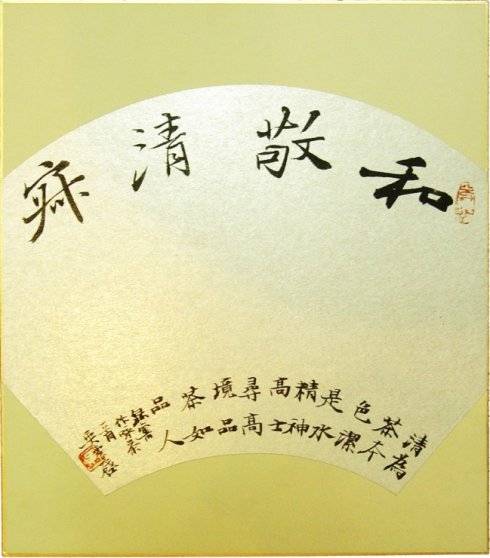 和敬清寂
清為
茶本
色潔
是水
精神
高士
尋高
境品
茶如
品人